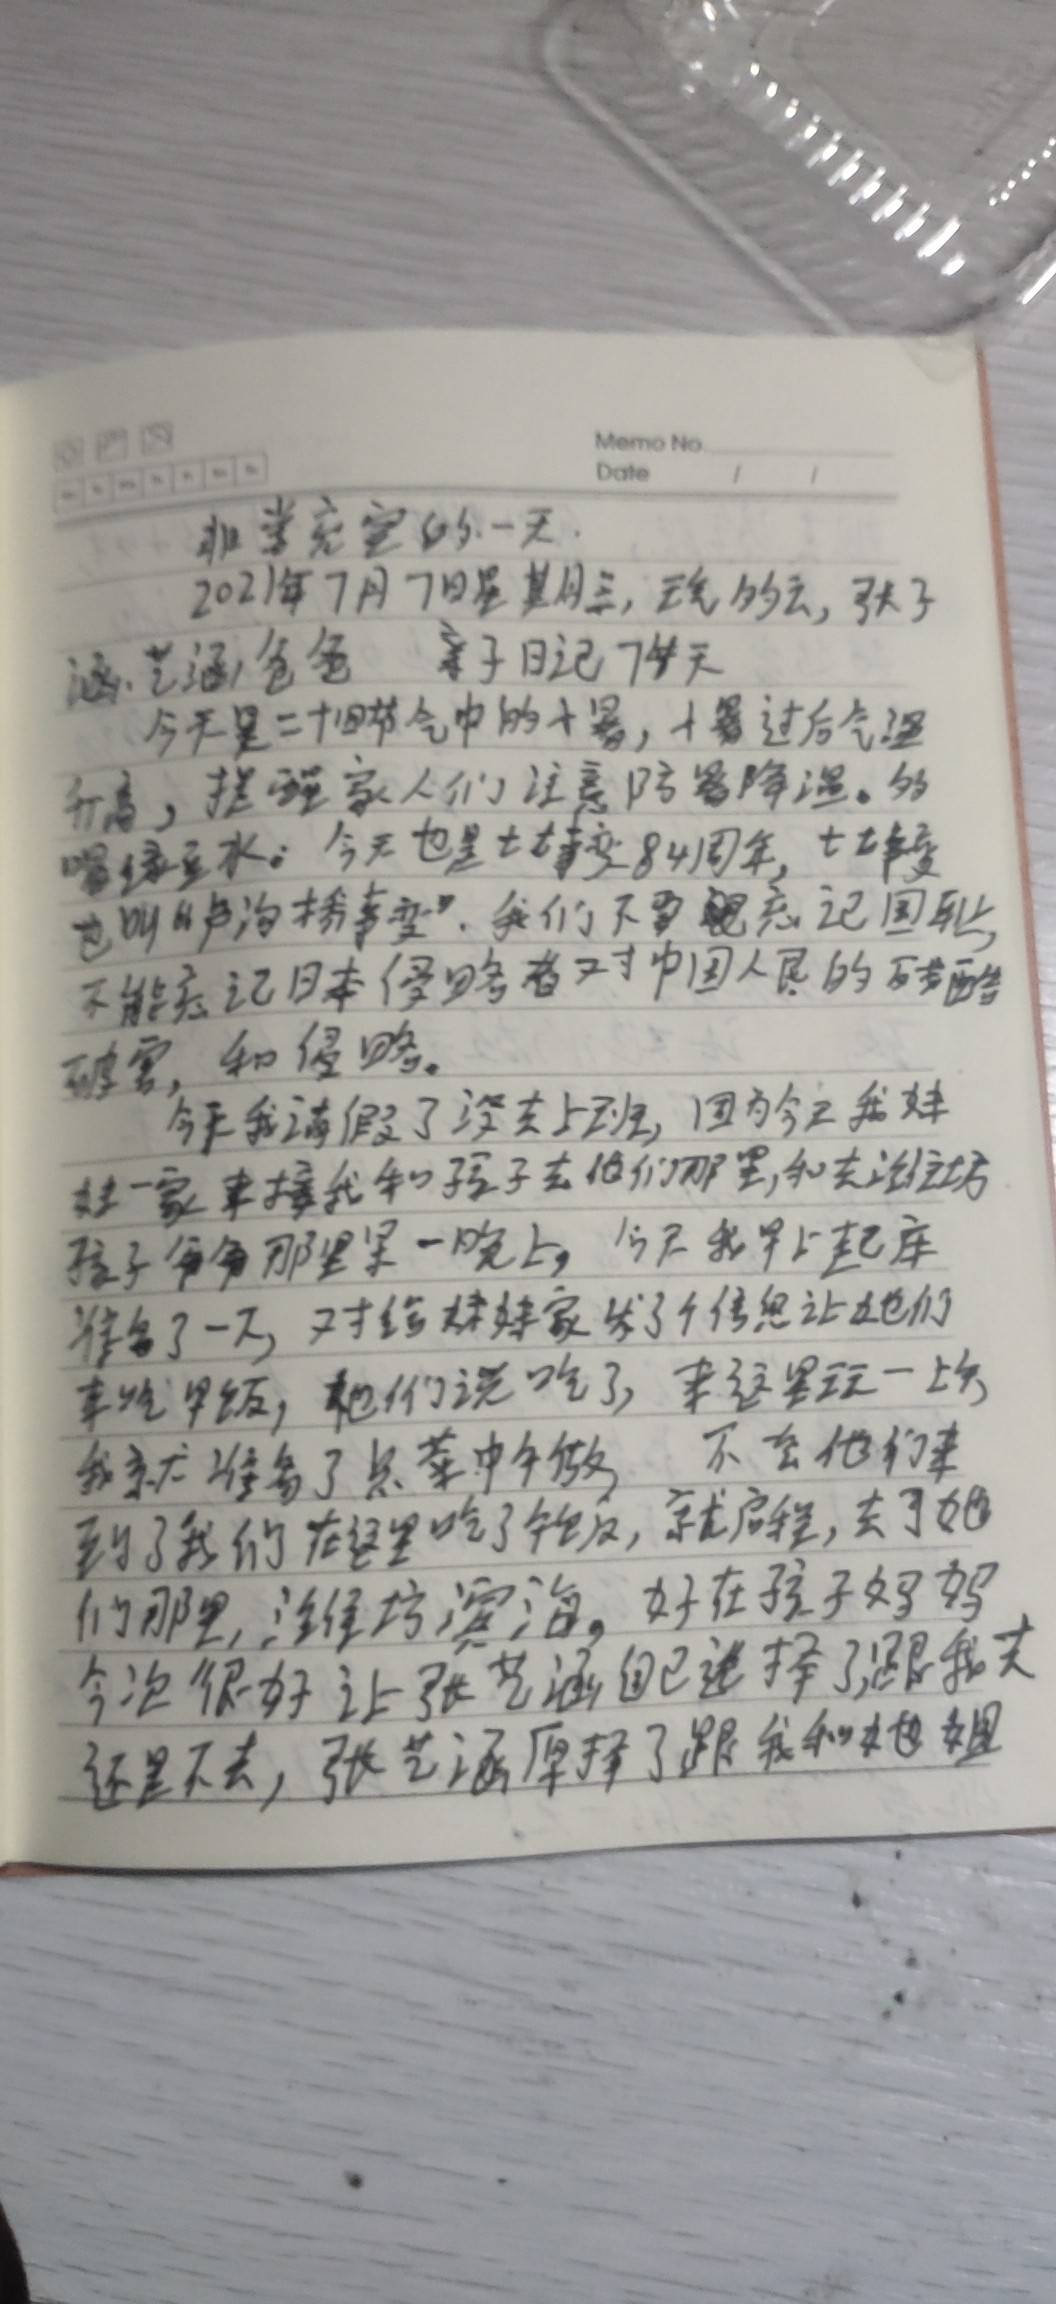 Memo No.
Date / /
非常充实的一天.
2021年7月7日星期三, 的云, 张子
涵、艺涵爸爸 亲子日记 天
今天是二十四节气中的小暑, 小暑过后气温
升高, 提醒家人们注意防暑降温。的
喝绿豆水。今天也是七七事变84周年, 七七事变
也叫"卢沟桥事变". 我们不要忘记国耻,
不能忘记日本侵略者对中国人民的 酷
害, 和侵略。
今天我请假了没去上班, 因为今天我妹
妹一家来接我和孩子去他们那里, 和去潍坊
孩子爷爷那里呆一晚上。今天我早上起床
准备了一下, 对给妹妹家发了个信息让她们
来吃早饭, 他们说吃了, 来这里玩一上午,
我就准备了点菜中午做, 不会他们来
到了我们在这里吃了午饭, 就启程, 去了她
们那里, 潍坊滨海。好在孩子妈妈
今次很好让张艺涵自己选择了跟我去
还是不去, 张艺涵 择了跟我和她姐